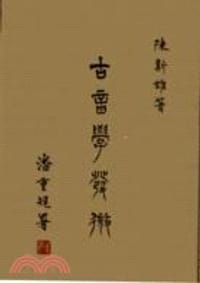 陳新雄著
古音學發微
潘重規署